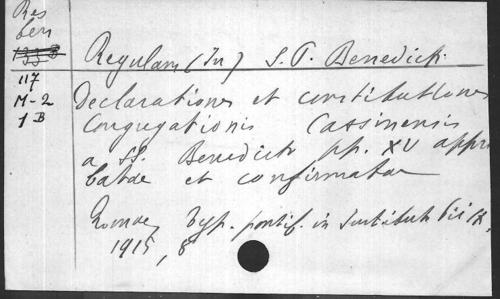 Res
ben
1333
Regulam (In) S. P. Benedicti
117
M-2
1 B
Declarationes et constitutiones
Congregationis Cassinensis
a SS. Benedicto pp. XV appro
batae et confirmatae
Romae, Typ. pontif. in Instituto Pii IX,
1915, 8